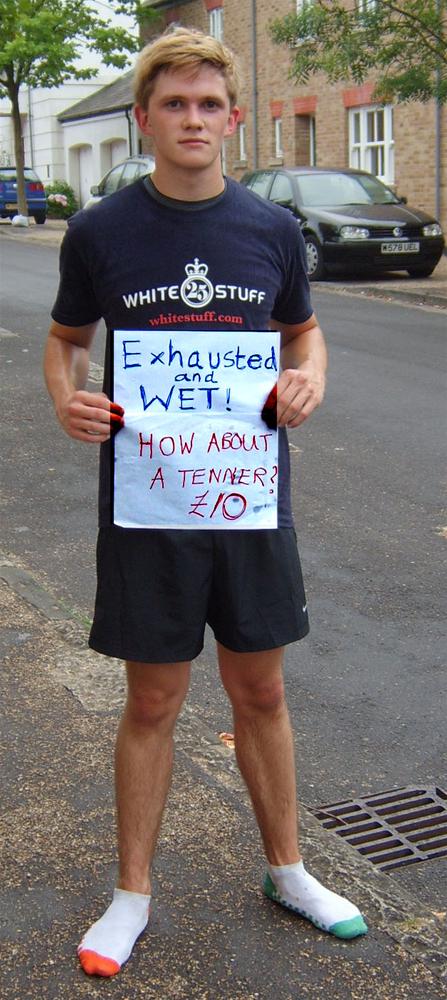 W578 UEL
WHITE 25 STUFF
whitestuff.com
Exhausted
and
WET!
HOW ABOUT
A TENNER?
£10